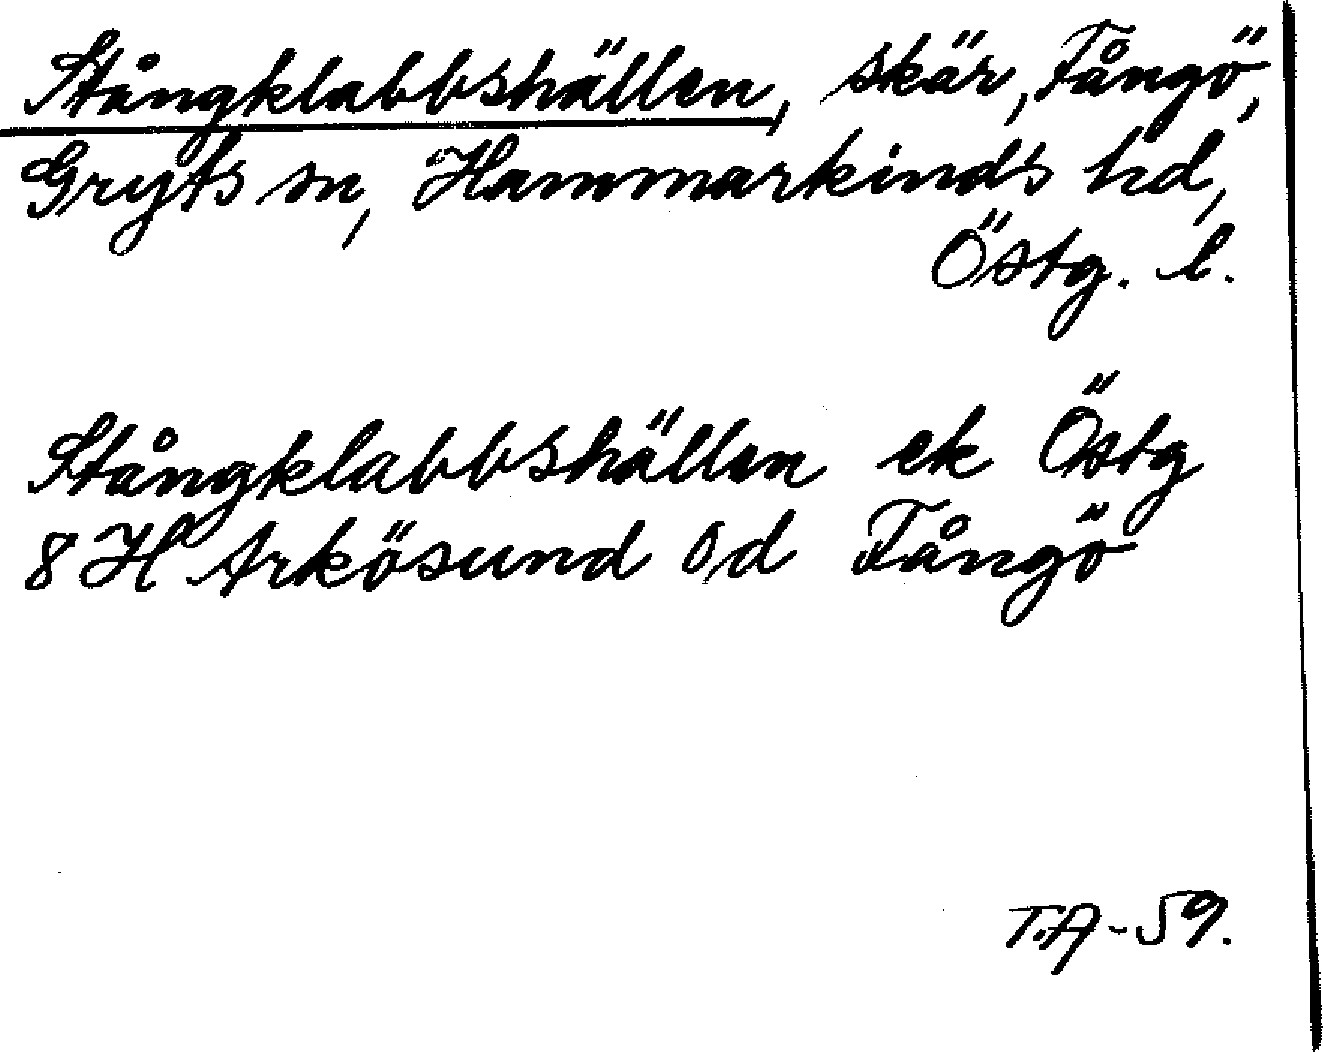 Stångklabbshällen, skär, Fångö,
Gryts sn, Hammarkinds hd,
Östg. l.
Stångklabbshällen ek Östg
8 H Arkösund öd Fångö
T.A-59.